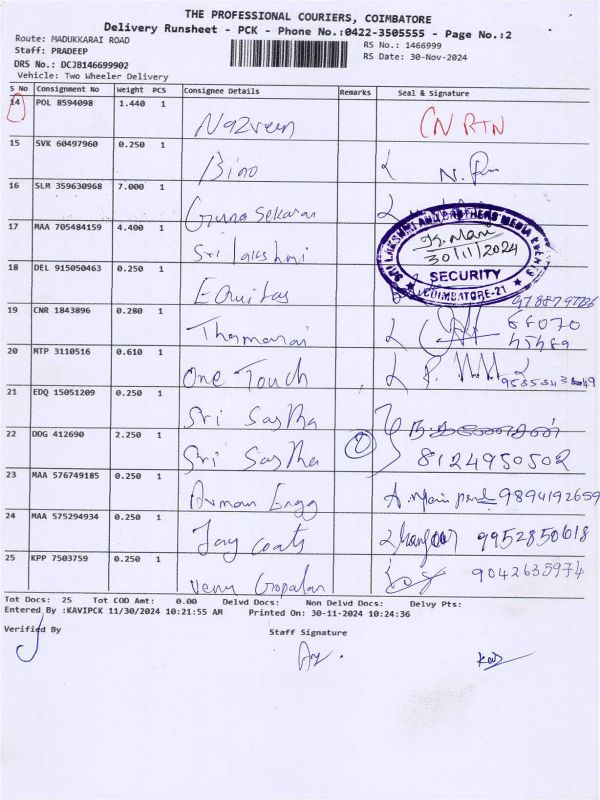 THE PROFESSIONAL COURIERS, COIMBATORE
Delivery Runsheet - PCK - Phone No.:0422-3505555 - Page No.:2
Route: MADUKKARAI ROAD
RS No.: 1466999
Staff: PRADEEP
RS Date: 30-Nov-2024
DRS No.: DCJB146699902
Vehicle: Two Wheeler Delivery
S No Consignment No Weight PCS Consignee Details Remarks Seal & Signature
14 POL 8594098 1.440 1 Nazreen CN RTN
15 SVK 60497960 0.250 1 Bino
16 SLM 359630968 7.000 1 Guna Sekaran
17 MAA 705484159 4.400 1 Sri Lakshmi
SRI LAKSHMI AND BROTHERS MEDIA EVENTS
K. Mani
30/11/2024
SECURITY
COIMBATORE-21
18 DEL 915050463 0.250 1 Equitas
19 CNR 1843896 0.280 1 Thamarai
20 MTP 3110516 0.610 1 One Touch
21 EDQ 15051209 0.250 1 Sri Sastha
22 DDG 412690 2.250 1 Sri Sastha 2 8124950502
23 MAA 576749185 0.250 1 Arman Engg 9894192659
24 MAA 575294934 0.250 1 Jay coats 9952850618
25 KPP 7503759 0.250 1 Venu Gopalan 9042635974
Tot Docs: 25 Tot COD Amt: 0.00 Delvd Docs: Non Delvd Docs: Delvy Pts:
Entered By :KAVIPCK 11/30/2024 10:21:55 AM Printed On: 30-11-2024 10:24:36
Verified By Staff Signature